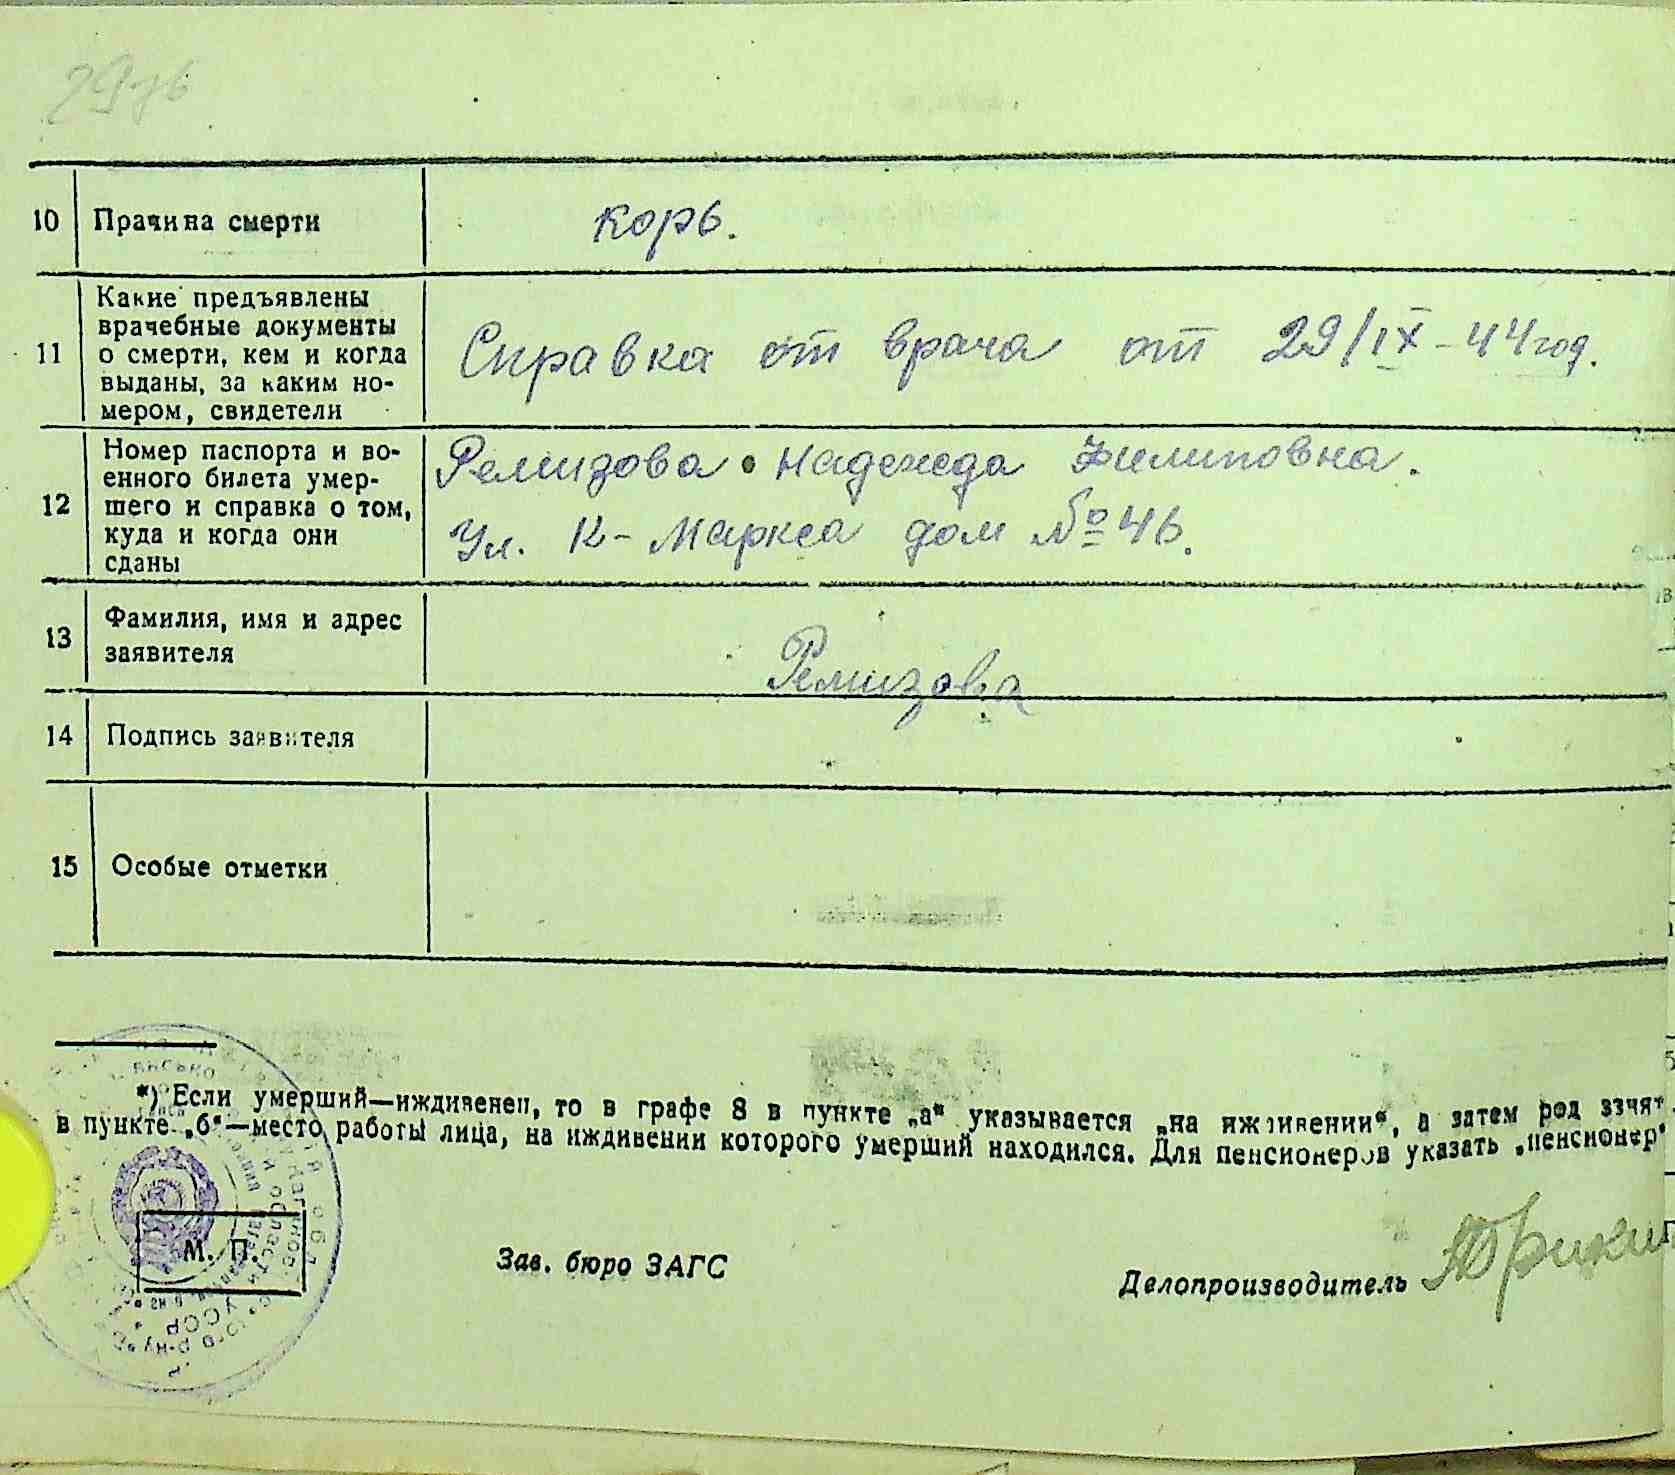 10 Прачина смерти корь.
11 Какие предъявлены
врачебные документы
о смерти, кем и когда
выданы, за каким но-
мером, свидетели
Справка от врача от 29/IX-44 год.
12 Номер паспорта и во-
енного билета умер-
шего и справка о том,
куда и когда они
сданы
Ремизова Надежда Филиповна.
Ул. К-Маркса дом № 46.
13 Фамилия, имя и адрес
заявителя
Ремизова
14 Подпись заявителя
15 Особые отметки
*) Если умерший—иждивенец, то в графе 8 в пункте „а“ указывается „на иждивении“, а затем род занят.
в пункте „б“—место работы лица, на иждивении которого умерший находился. Для пенсионеров указать „пенсионер“
М. П.
Зав. бюро ЗАГС
Делопроизводитель
УССР